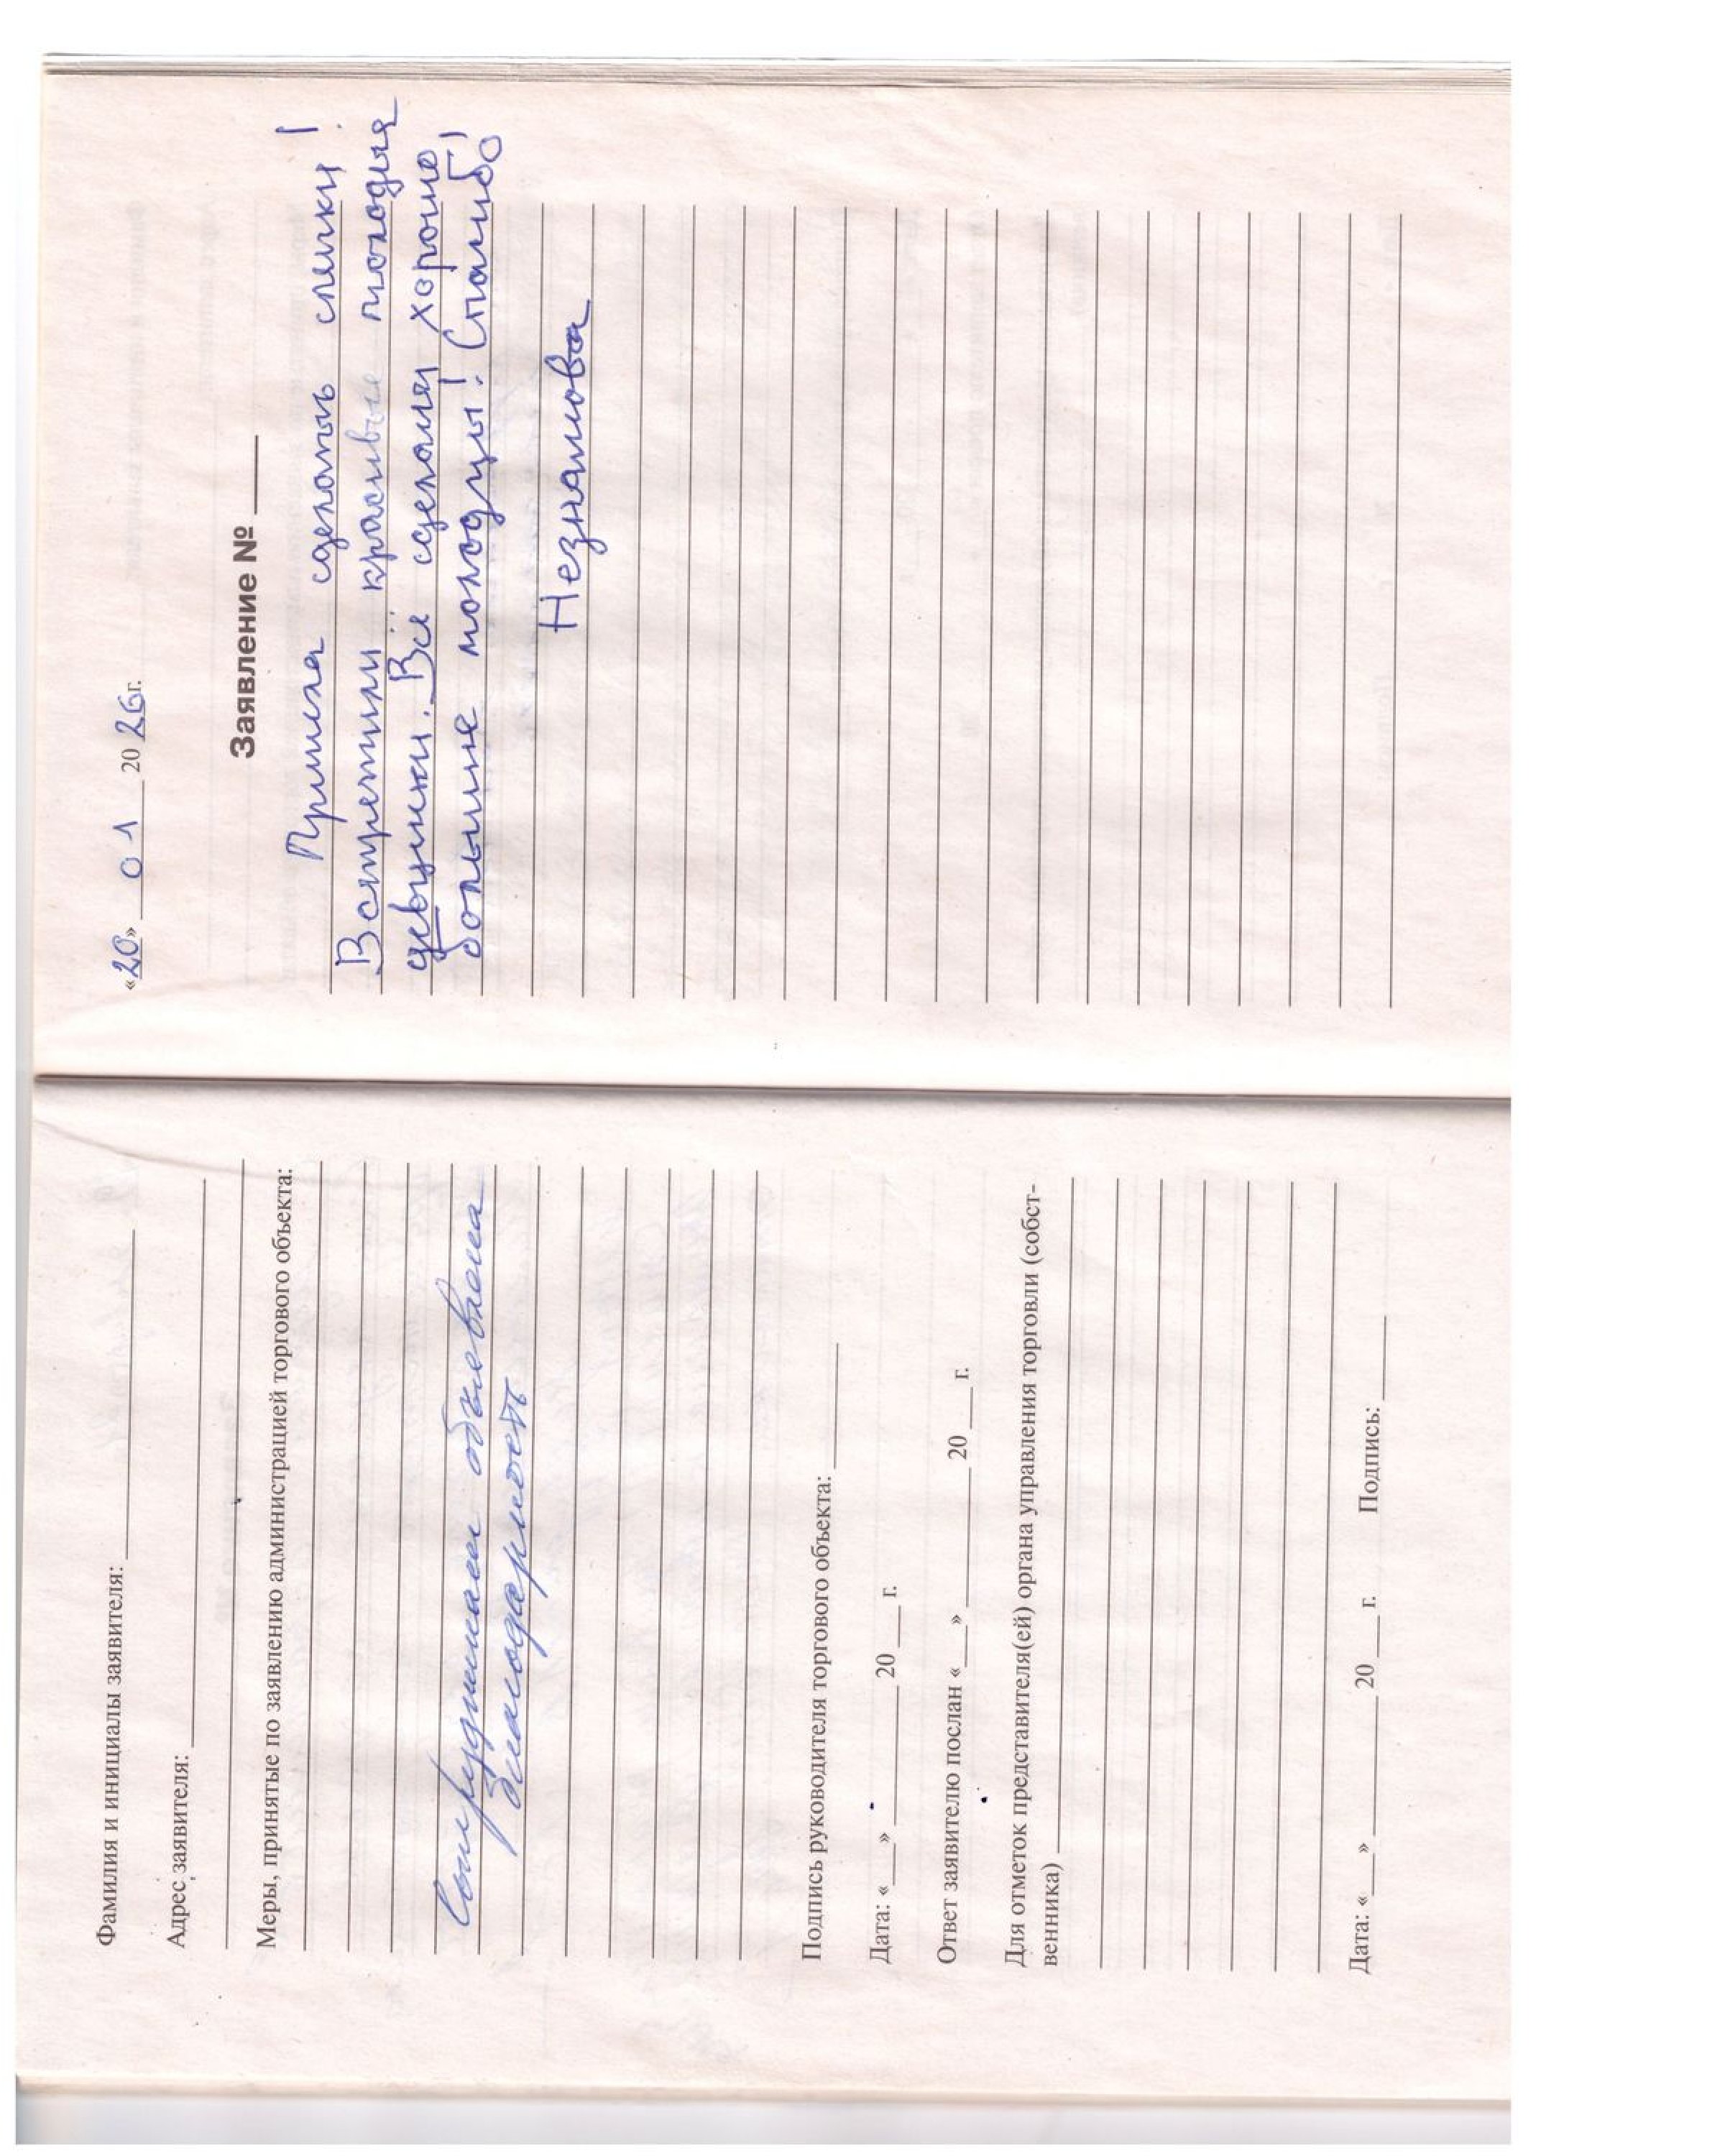 Фамилия и инициалы заявителя:
Адрес заявителя:
Меры, принятые по заявлению администрацией торгового объекта:
Сотрудникам объявлена
благодарность
Подпись руководителя торгового объекта:
Дата: «___» ______ 20___ г.
Ответ заявителю послан «___» ______ 20___ г.
Для отметок представителя(ей) органа управления торговли (собст-
венника)
Дата: «___» ______ 20___ г. Подпись:
«20» 01 2026г.
Заявление №
Пришла сделать слепки!
Встретили красивые молодыя
девушки. Всё сделали хорошо
большие молодцы! Спасибо!
Незнамова